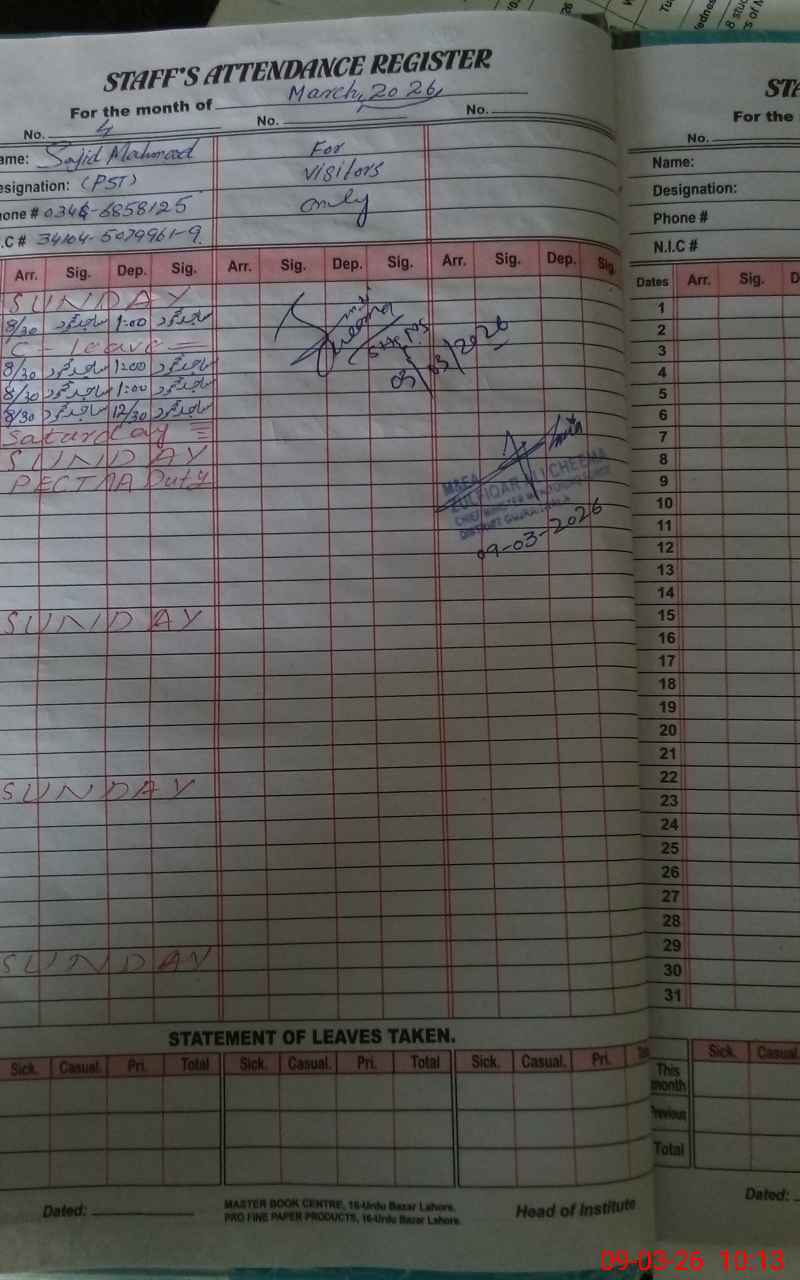 STAFF'S ATTENDANCE REGISTER
For the month of March, 2026
No. 4 No. No.
ame: Sajid Mahmood
esignation: (PST)
hone # 0346-6858125
.C # 34104-5079961-9
For
visitors
only
Arr. Sig. Dep. Sig. Arr. Sig. Dep. Sig. Arr. Sig. Dep. Sig.
SUNDAY
8/30 ساجد محمود 1:00 ساجد محمود
C - leave
8/30 ساجد محمود 1:00 ساجد محمود
8/30 ساجد محمود 1:00 ساجد محمود
8/30 ساجد محمود 12/30 ساجد محمود
Saturday
SUNDAY
PECTAA Duty
03/03/2026
MAEA
ZULFIQAR ALI CHEEMA
CHIEF MINISTER MONITORING FORCE
DISTRICT GUJRANWALA
09-03-2026
SUNDAY
SUNDAY
SUNDAY
STATEMENT OF LEAVES TAKEN.
Sick. Casual. Pri. Total Sick. Casual. Pri. Total Sick. Casual. Pri.
Dated:
MASTER BOOK CENTRE, 16-Urdu Bazar Lahore.
PRO FINE PAPER PRODUCTS, 16-Urdu Bazar Lahore.
Head of Institute
STA
For the
No.
Name:
Designation:
Phone #
N.I.C #
Dates Arr. Sig. D
1
2
3
4
5
6
7
8
9
10
11
12
13
14
15
16
17
18
19
20
21
22
23
24
25
26
27
28
29
30
31
Sick. Casual
This
month
Previous
Total
Dated:
09-03-26 10:13